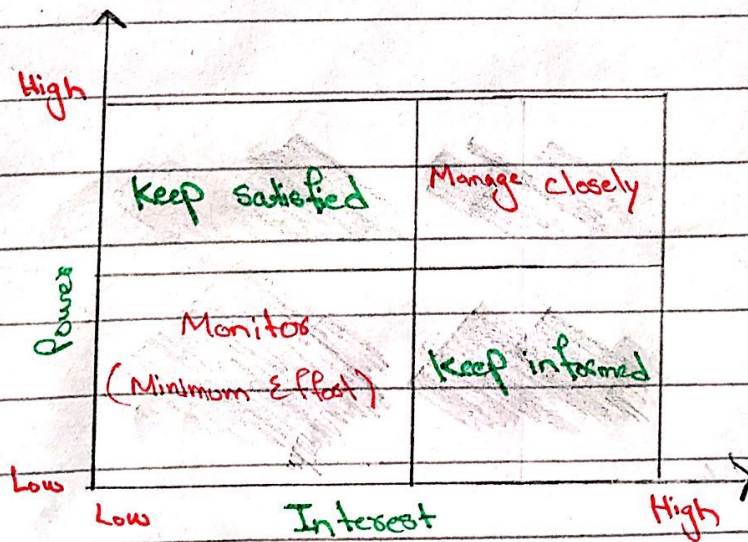 High
Keep satisfied
Manage closely
Power
Monitor
(Minimum Effort)
Keep informed
Low
Low
Interest
High